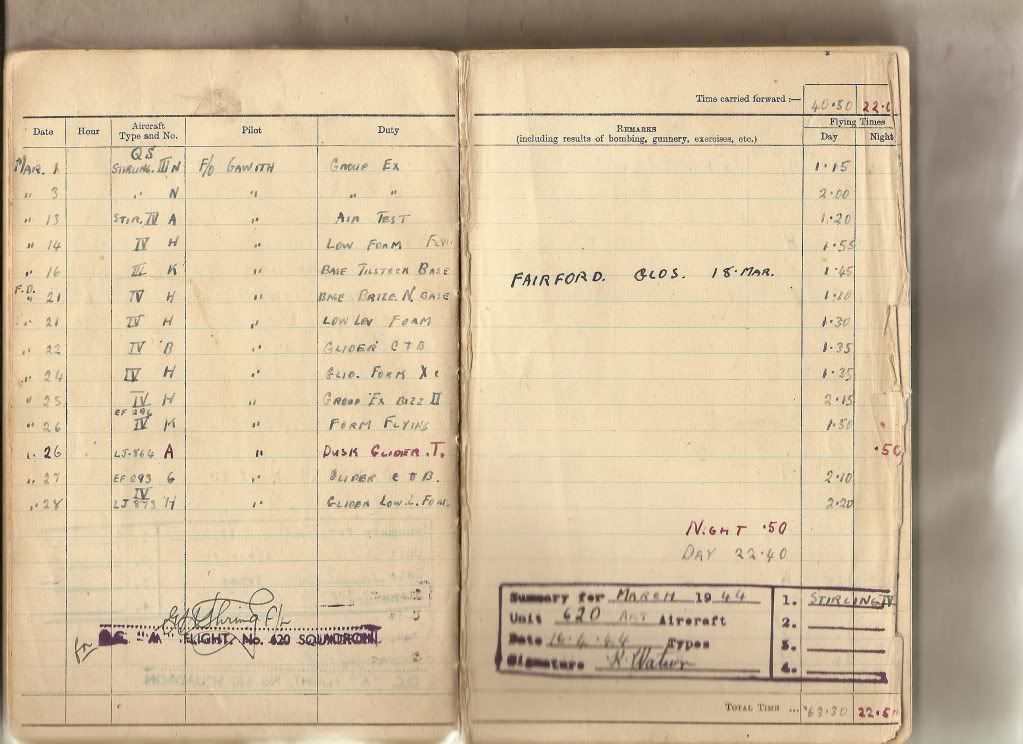 Time carried forward :— 40.50 22.
Date Hour Aircraft Type and No. Pilot Duty REMARKS (including results of bombing, gunnery, exercises, etc.) Flying Times Day Night
QS
MAR. 1 STIRLING. III N F/O GAWITH GROUP EX 1.15
" 3 " N " " " 2.00
" 13 STIR. IV A " AIR TEST 1.20
" 14 IV H " LOW FORM 1.55
" 16 III K " BASE TILSTOCK BASE FAIRFORD. GLOS. 18.MAR. 1.45
F.D.
" 21 IV H " BASE BRIZE. N. BASE 1.10
" 21 IV H " LOW LEV FORM 1.30
" 22 IV B " GLIDER C T B 1.35
" 24 IV H " GLID. FORM 1.35
" 25 IV H " GROUP EX BIZZ II 2.15
EF 296
" 26 IV M " FORM FLYING 1.30
" 26 LJ.864 A " DUSK GLIDER .T. .50
" 27 EF 293 G " GLIDER C T B. 2.10
IV
" 28 LJ 873 H " GLIDER LOW.L. FORM. 2.20
NIGHT .50
DAY 22.40
F/L
"A" FLIGHT. No. 620 SQUADRON.
Summary for MARCH 1944 1. STIRLING IV
Unit 620 Aircraft 2.
Date 16.4.44 Types 3.
Signature 4.
TOTAL TIME ... 63.30 22.5